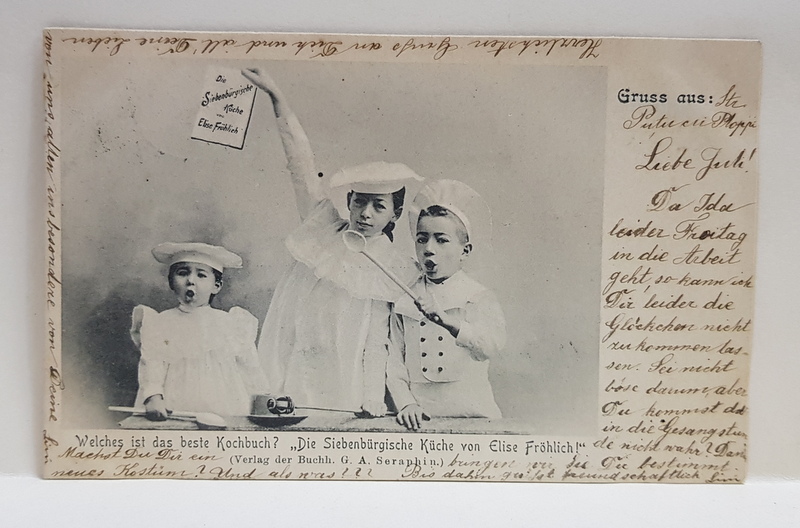 Herzlichsten Gruss an Dich und all' Deine Lieben
von uns allen insbesondere von Deine
Die
Siebenbürgische
Küche
von
Elise Fröhlich
Gruss aus: Str
Putu cu Ploppi
Liebe Juli!
Da Ida
leider Freitag
in die Arbeit
geht, so kann ich
Dir leider die
Glöckchen nicht
zukommen las-
sen. Sei nicht
böse darum, aber
Du kommst da
in die Gesangstun
de nicht wahr? Dann
Welches ist das beste Kochbuch? „Die Siebenbürgische Küche von Elise Fröhlich!“
(Verlag der Buchh. G. A. Seraphin.)
bringen wir sie Dir bestimmt.
Machst Du Dir ein
neues Kostüm? Und als was!??
Bis dahin grüsst freundschaftlich